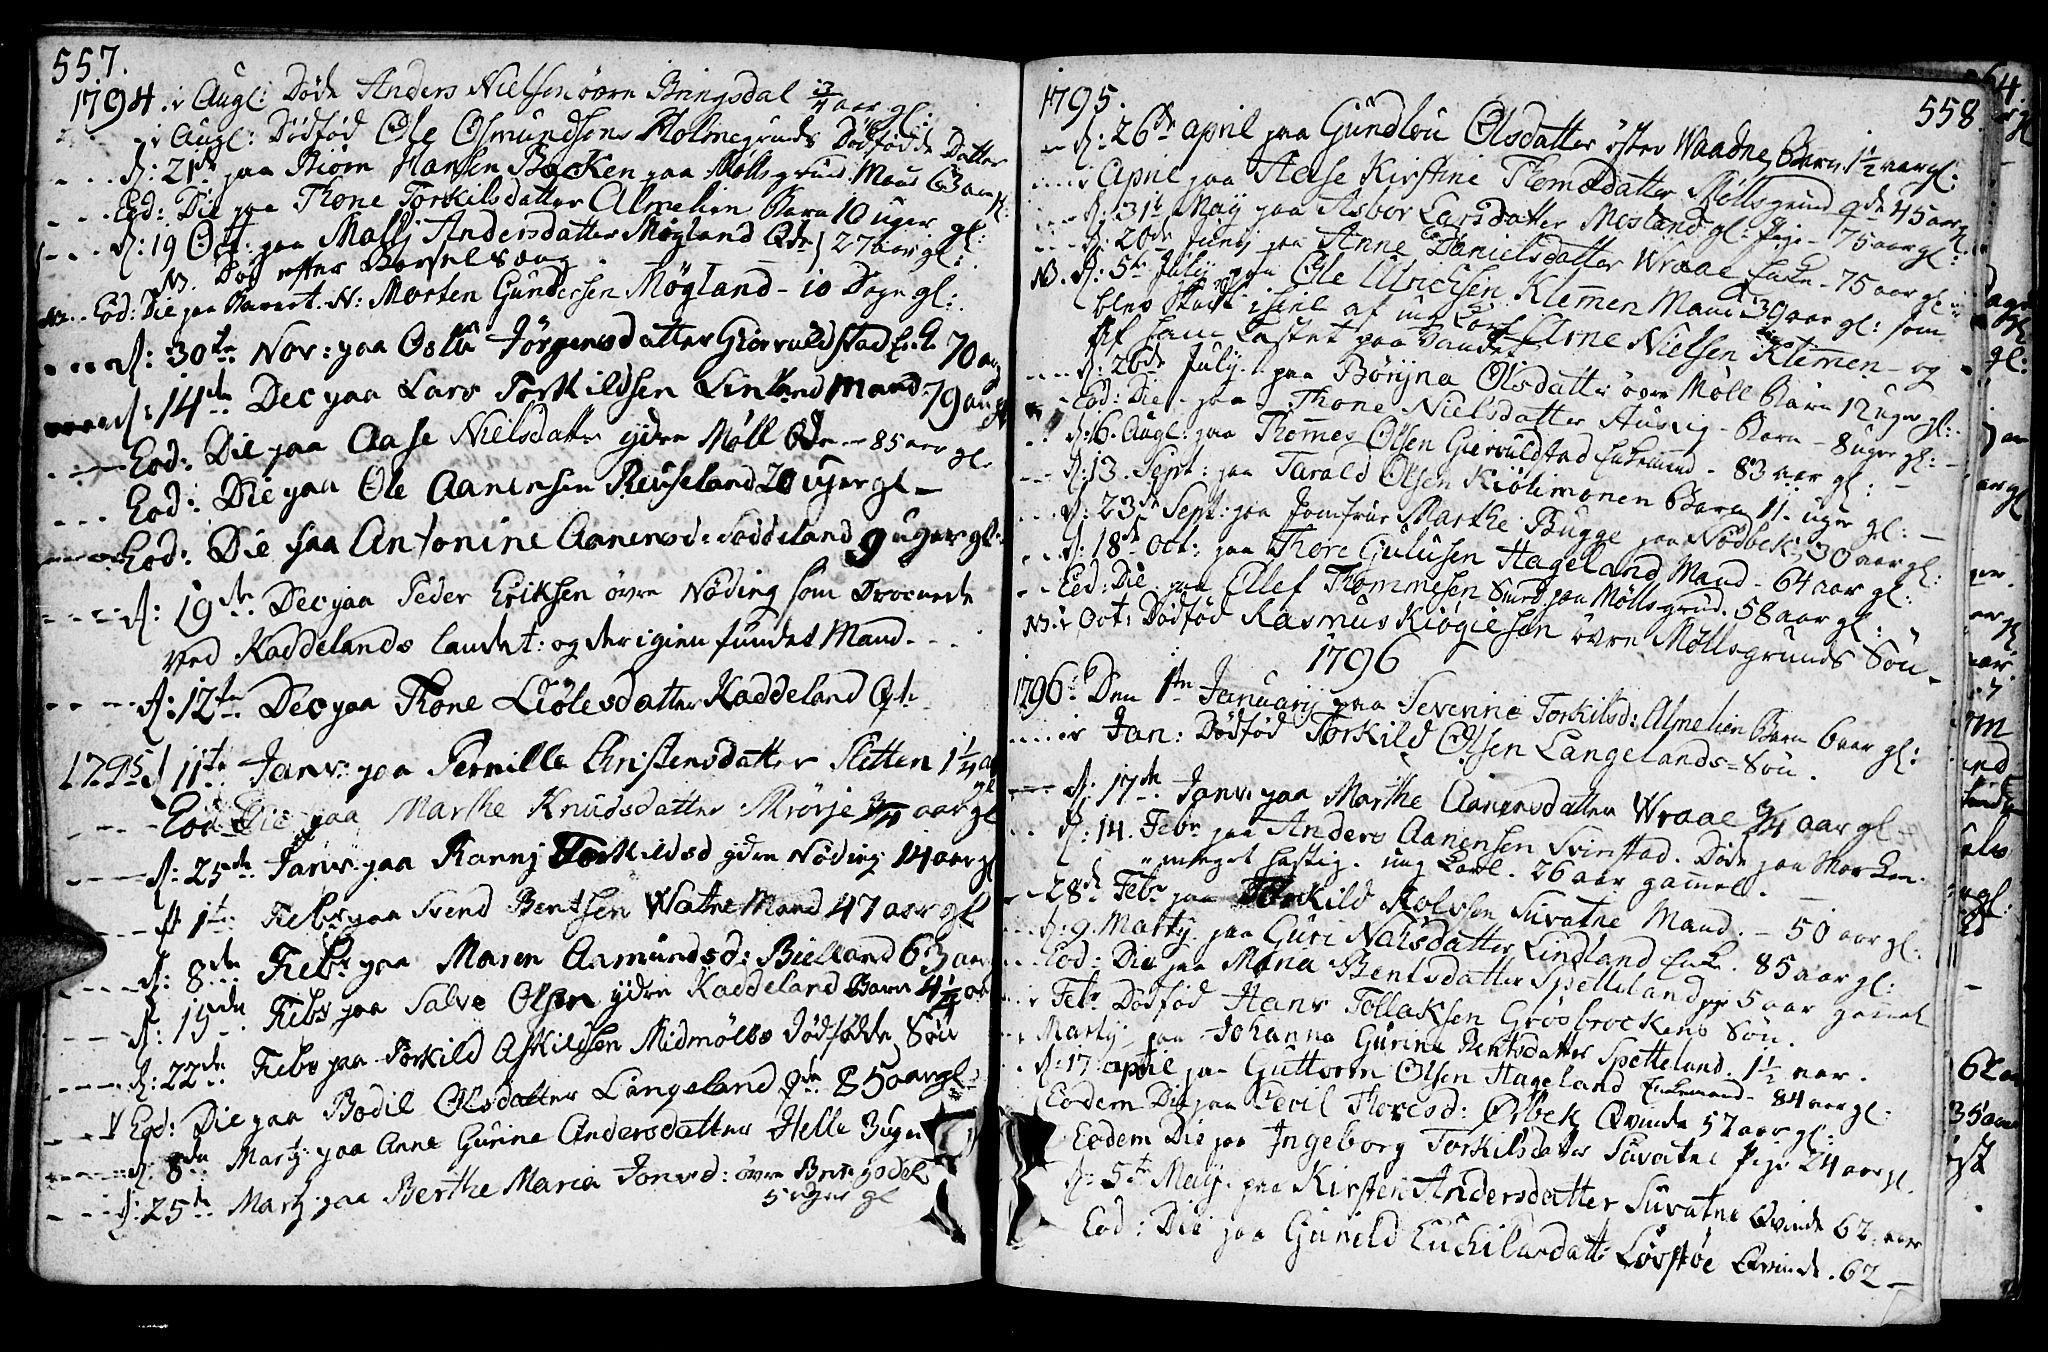 557.
1794. i Augl: Døde Anders Nielsen øvre Bringsdal 13/4 aar gl:
i Augl: Dødfød Ole Osmundsens Holmegrunds Dødfødde Datter
d: 21de paa Biørn Hansen Backen paa Møllsgrund Mand 63 aar
Eod: Die paa Thone Torkilsdatter Almelien Barn 10 uger gl:
d: 19 Oct: paa Mallj Andersdatter Møgland Qde 27 aar gl:
N. Dog efter Barselsæng.
Eod: Die paa Barnet. N: Morten Gundersen Møgland - 10 Dage gl:
d: 30te Nov: paa Oslu Jørgensdatter Giervuldstad 70 aar
d: 14de Dec paa Lars Torkildsen Linland Mand 79 aar gl
Eod: Die paa Aase Nielsdatter ydre Møll Qde - 85 aar gl.
Eod: Die paa Ole Aanensen Reuseland 20 uger gl -
Eod: Die paa Antonine Aanensd: Soddeland 9 uger gl.
d: 19de Dec paa Peder Eriksen øvre Nøding som Drocnede
ved Kaddelands landet: og der igien fundet Mand.
d: 12te Dec paa Thone Liølesdatter Kaddeland Qde
1795 d 11te Janv: paa Pernille Christensdatter Sletten 1 1/4 aar gl
Eod Die paa Marthe Knudsdatter Mrørje 3/4 aar gl
d: 25de Janv: paa Rannj Torkildsd ydre Nøding 14 aar gl
d 1te Febr paa Svend Bentsen Watne Mand 47 aar gl
d: 8de Febr paa Maren Aamundsd: Bielland 63 aar
d: 15de Febr paa Salve Olsen ydre Kaddeland Barn 4 1/4 aar
d: 22de Febr paa Torkild Askildsen Midmølls Dødfødde Søn
Eod: Die paa Bodil Olsdatter Langeland Qde 85 aar gl.
d: 8de Martz: paa Anne Gurine Andersdatter Helle 3 uger
d: 25de Martz paa Berthe Maria Jonsd: øvre Bringsdal
5 uger gl
558.
1795.
d: 26de april paa Gundlou Olsdatter øster Waadne, Barn 1 1/2 aar gl:
i April paa Aase Kirstine Thomsdatter Møllsgrund Qde 45 aar gl
d: 31te Maij paa Asbor Larsdatter Mosland gl: Pige - 75 aar gl:
d: 20de Junij paa Anne Danielsdatter Wraae Enke - 75 aar gl:
N. d: 5te Julij paa Ole Ulrichsen Klemmen Mand 39 aar gl: som
blev skudt ihiel af ung Karl Arne Nielsen Klemmen - og
af ham Kastet paa Vandet
d: 26de Julij. paa Børyna Olsdatter øvre Møll Barn 12 uger gl:
Eod: Die - paa Thone Nielsdatter Ausvig - Barn - 8 uger gl: -
d: 6. Augl: paa Thommes Olsen Giervuldstad Enkemand - 83 aar gl:
d: 13. Sept: paa Tarald Olsen Kiølemonen Barn 11. uger gl: -
d: 23de Sept: paa Jomfrue Marthe Bugge paa Nødbek, 30 aar gl:
d: 18de Oct: paa Thore Gulusen Hageland Mand - 64 aar gl:
Eod: Die paa Ellef Thommesen Smed paa Møllsgrud. 58 aar gl:
N. i Oct: Dødfød Rasmus Kiøgiesen øvre Møllsgrunds Søn -
1796
1796: Den 1te Januarij paa Severine Torkilsd: Almelien Barn 6 aar gl:
i Jan: Dødfød Torkild Olsen Langelands = Søn.
d: 17de Janv: paa Marthe Aanensdatter Wraae 3/4 aar gl -
d: 14. Febr paa Anders Aanensen Svinstad. Døde paa Marken
meget hastig. ung Karl. 26 aar gammel.
28de Febr paa Torkild Rolvsen Suvatne Mand. - 50 aar gl.
d: 9. Martij paa Guri Nahsdatter Lindland Enke. 85 aar gl:
Eod: Die paa Maria Bentsdatter Spetteland pge 5 aar gamel
i Febr Dødfød Hans Tollaksen Grøsbrockens Søn.
Martij paa Johanna Gurine Bentsdatter Spetteland. 1 1/2 aar.
d: 17 april paa Guttorm Olsen Hageland Enkemand - 84 aar gl:
Eodem Die paa Sevil Thoresd: Ørbek Qvinde 57 aar gl:
Eodem Die paa Ingeborg Torkilsdatter Suvatne Pige 24 aar gl.
d: 5te Maij. paa Kirsten Andersdatter Suvatne Qvinde 62. aar
Eod: Die paa Gunild Euchilasdatt: Løvstøe Qvinde. 62 -